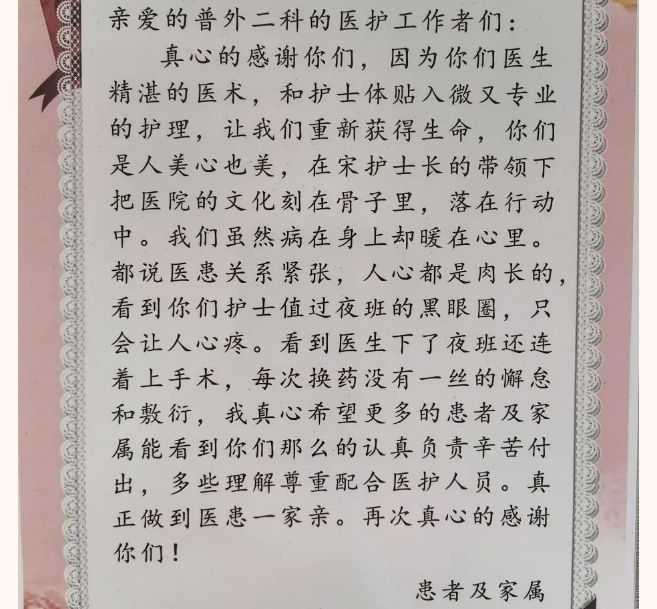 亲爱的普外二科的医护工作者们：
真心的感谢你们，因为你们医生
精湛的医术，和护士体贴入微又专业
的护理，让我们重新获得生命，你们
是人美心也美，在宋护士长的带领下
把医院的文化刻在骨子里，落在行动
中。我们虽然病在身上却暖在心里。
都说医患关系紧张，人心都是肉长的，
看到你们护士值过夜班的黑眼圈，只
会让人心疼。看到医生下了夜班还连
着上手术，每次换药没有一丝的懈怠
和敷衍，我真心希望更多的患者及家
属能看到你们那么的认真负责辛苦付
出，多些理解尊重配合医护人员。真
正做到医患一家亲。再次真心的感谢
你们！
患者及家属